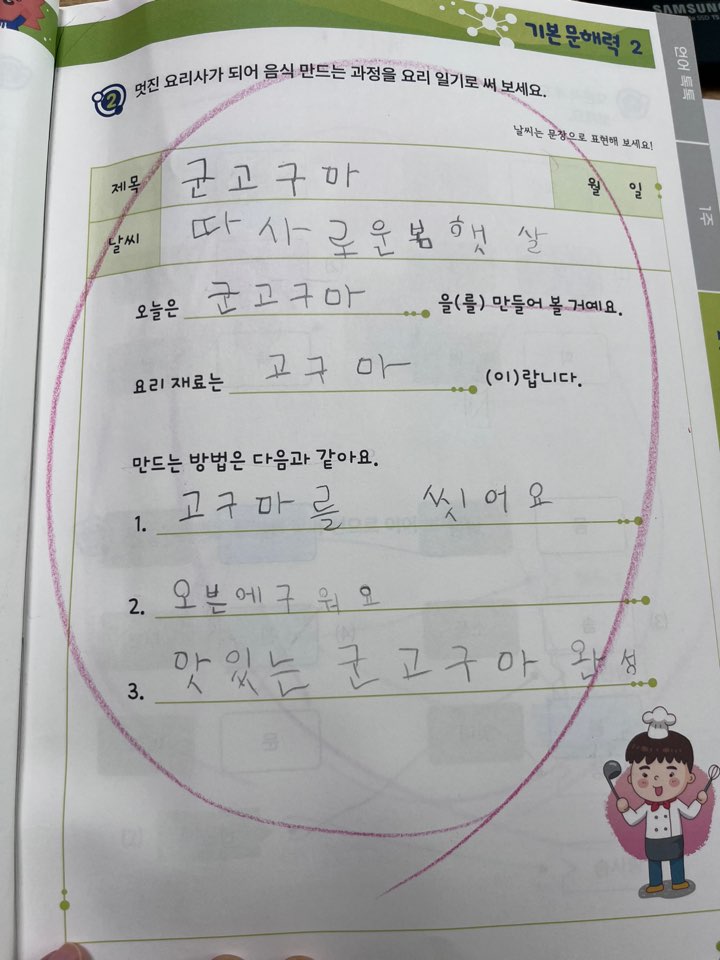 SAMSUNG
기본 문해력 2
언어 톡톡
1주
2 멋진 요리사가 되어 음식 만드는 과정을 요리 일기로 써 보세요.
날씨는 문장으로 표현해 보세요!
제목 군고구마 월 일
날씨 따사로운봄햇살
오늘은 군고구마 을(를) 만들어 볼 거예요.
요리 재료는 고구마 (이)랍니다.
만드는 방법은 다음과 같아요.
1. 고구마를 씻어요
2. 오븐에구워요
3. 맛있는 군고구마 완성